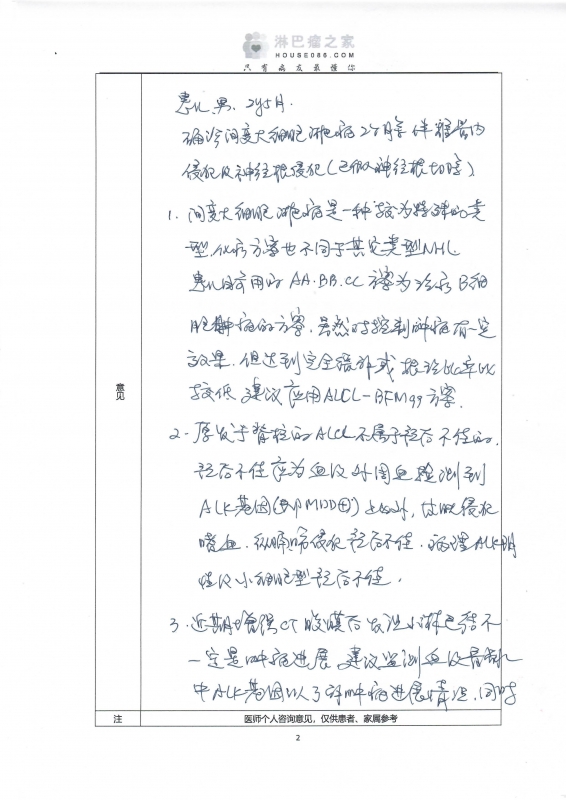 淋巴瘤之家
HOUSE086.COM
只有病友最懂你
患儿 男. 2y5月.
确诊间变大细胞淋巴瘤2个月余 伴椎管内
侵犯及神经根侵犯(已做神经根切除)
1. 间变大细胞淋巴瘤是一种较为特殊的类
型,化疗方案也不同于其它类型NHL
患儿目前用的AA.BB.CC方案为治疗B细
胞肿瘤的方案.虽然对控制肿瘤有一定
效果.但达到完全缓解或根治比率比
较低 建议应用ALCL-BFM99方案.
2. 原发于脊柱的ALCL不属于预后不佳的.
预后不佳应为血及外周血检测到
ALK基因(即MDD⊕)以外,皮肤侵犯
噬血.纵膈侵犯预后不佳.病理ALK阴
性及小细胞型预后不佳.
3. 近期增强CT腹膜后发现小淋巴结不
一定是肿瘤进展 建议监测血及骨髓
中ALK基因以了解肿瘤进展情况.同时
意见
注
医师个人咨询意见,仅供患者、家属参考
2